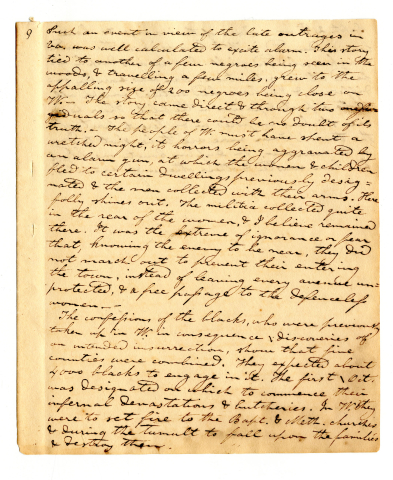 9 Such an event in view of the late outrages in
Va. was well calculated to excite alarm. This story
tied to another of a few negroes being seen in the
woods, & travelling a few miles, grew to the
appalling size of 200 negroes being close on
W.— The story came direct & through two
viduals so that there could be no doubt of its
truth.— The people of W. must have spent a
wretched night, its horrors being aggravated by
an alarm gun, at which the women & children
fled to certain dwellings previously desig-
nated & the men collected with their arms. Here
folly shines out. The militia collected quite
in the rear of the women, & I believe remained
there. It was the extreme of ignorance or fear
that, knowing the enemy to be near, they did
not march out to prevent their entering
the town, instead of leaving every avenue un-
protected, & a free passage to the defenceless
women.—
The confessions of the blacks, who were previously
taken up in W. in consequence discoveries of
an intended insurrection, show that five
counties were combined. They expected about
4000 blacks to engage in it. The first Oct.
was designated on which to commence their
infernal devastations & butcheries. In W. they
were to set fire to the Bapt. & Meth. churches
& during the tumult to fall upon the families
& destroy them.